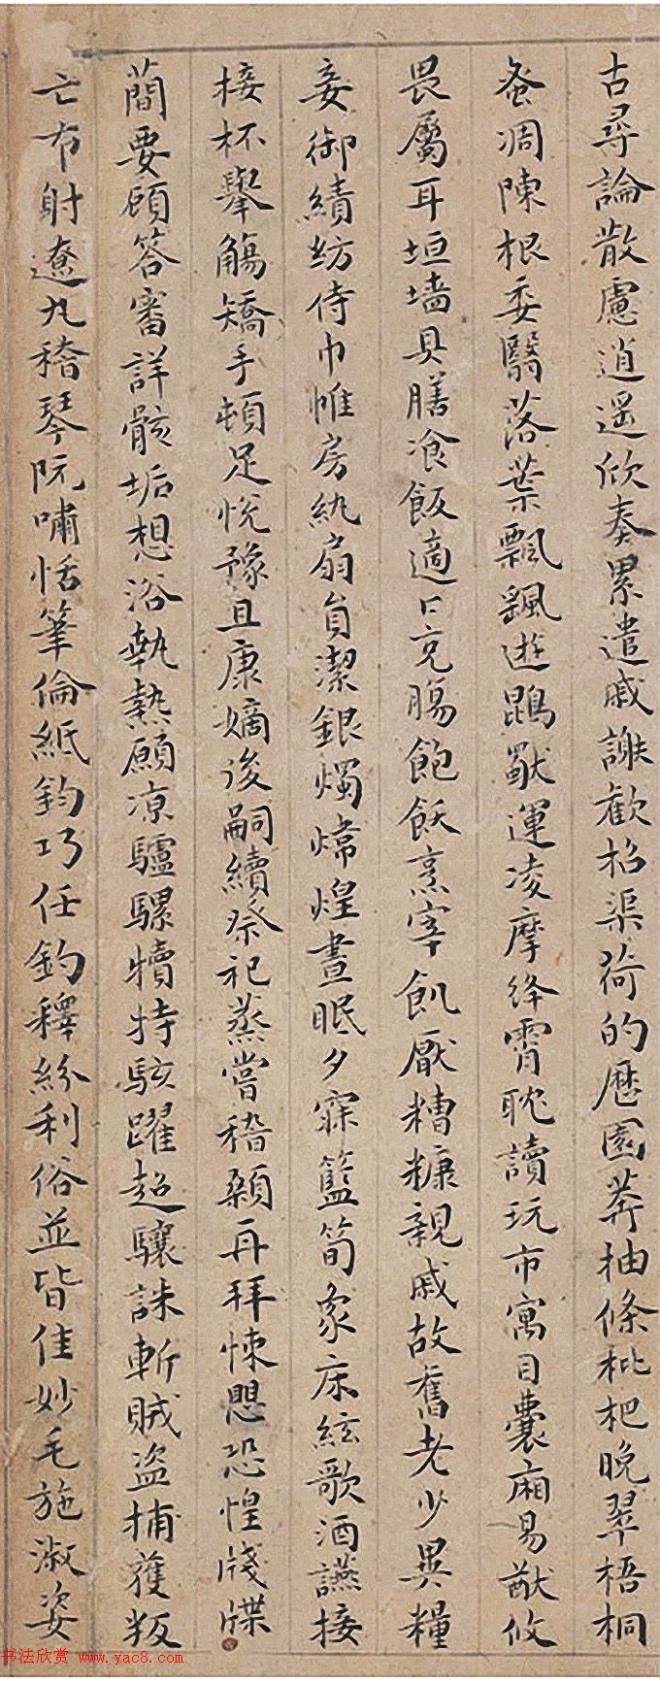 古尋論散慮逍遥欣奏累遣戚謝歡招渠荷的歷園莽抽條枇杷晚翠梧桐
蚤凋陳根委翳落葉飄颻遊鵾獨運凌摩絳霄耽讀玩市寓目囊廂易猷攸
畏屬耳垣墙具膳飡飯適口充腸飽飫烹宰飢厭糟糠親戚故舊老少異糧
妾御績紡侍巾帷房紈扇員潔銀燭煒煌晝眠夕寐籃筍象床絃歌酒讌接
接杯舉觴矯手頓足悅豫且康嫡後嗣續祭祀蒸嘗稽顙再拜悚愳恐惶牋牒
蕳要顧答審詳骸垢想浴執熱願凉驢騾犢特駭躍超驤誅斬賊盜捕獲叛
亡布射遼丸嵇琴阮嘯恬筆倫紙鈞巧任釣釋紛利俗並皆佳妙毛施淑姿
书法欣赏 www.yac8.com